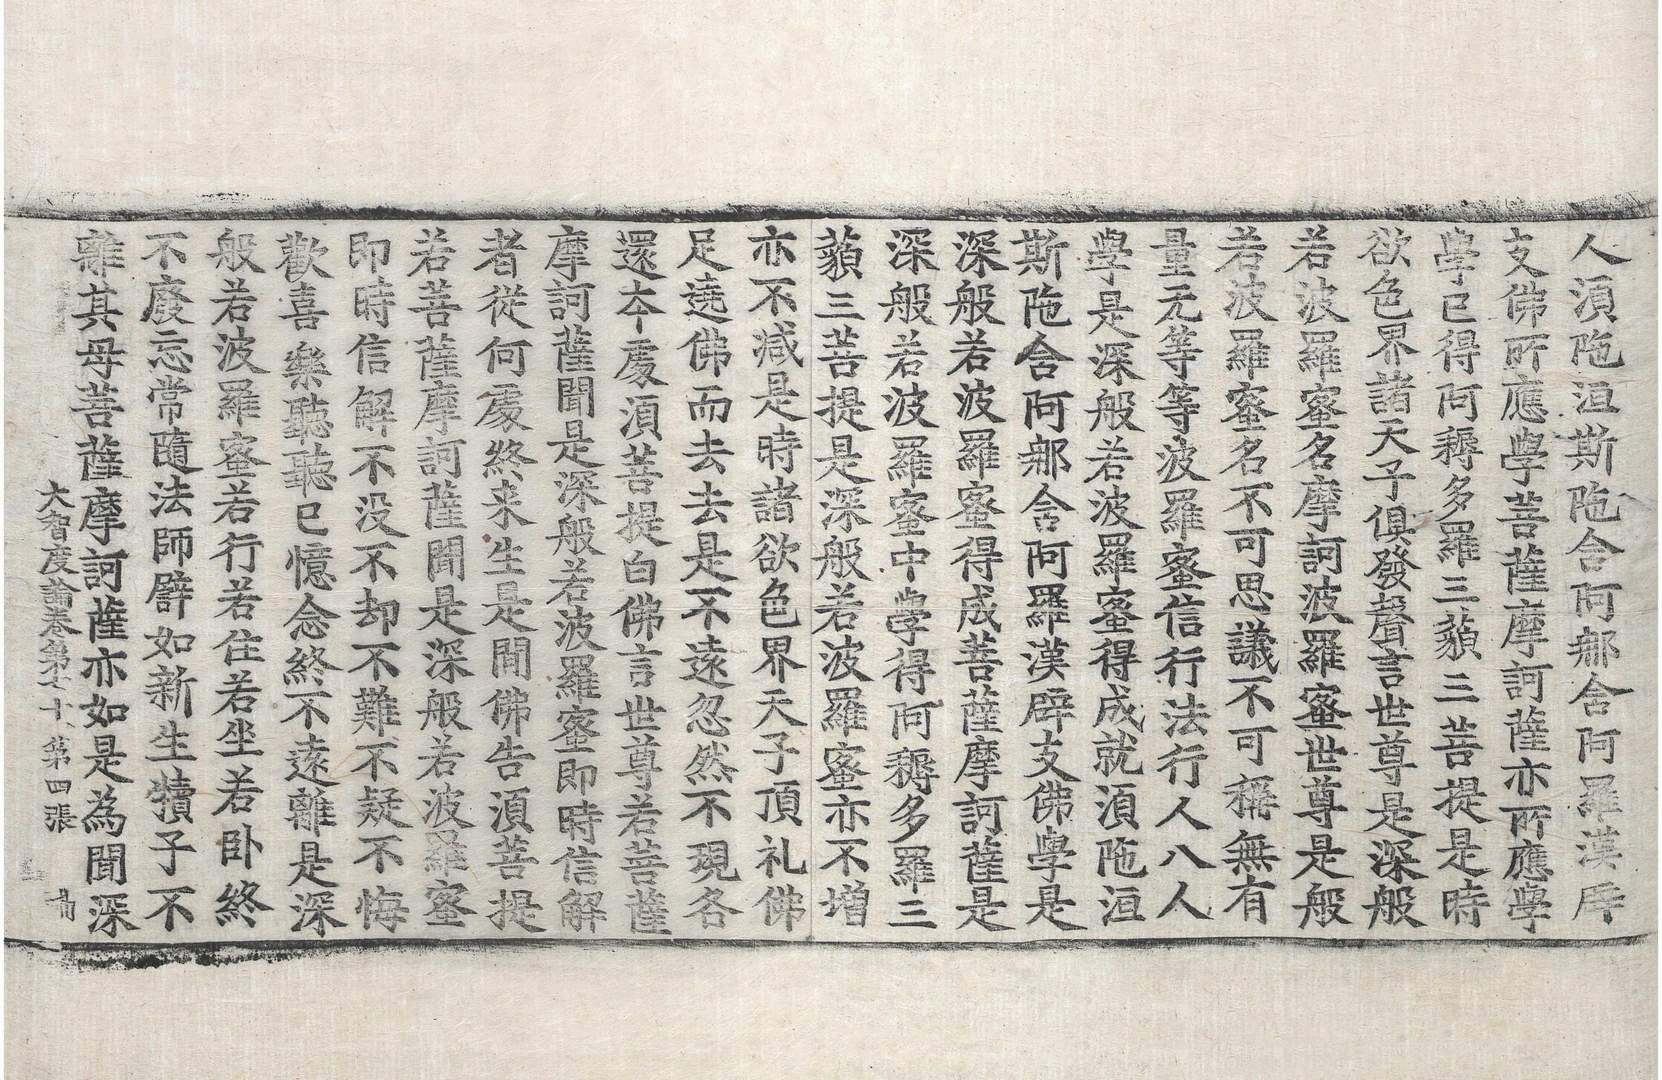 人湏陁洹斯陁含阿那含阿羅漢辟
支佛所應學菩薩摩訶薩亦所應學
學已得阿耨多羅三藐三菩提是時
欲色界諸天子俱發聲言世尊是深般
若波羅蜜名摩訶波羅蜜世尊是般
若波羅蜜名不可思議不可稱無有
量无等等波羅蜜信行法行人八人
學是深般若波羅蜜得成就湏陁洹
斯陁含阿那含阿羅漢辟支佛學是
深般若波羅蜜得成菩薩摩訶薩是
深般若波羅蜜中學得阿耨多羅三
藐三菩提是深般若波羅蜜亦不增
亦不減是時諸欲色界天子頂礼佛
足遶佛而去去是不遠忽然不現各
還本處湏菩提白佛言世尊若菩薩
摩訶薩聞是深般若波羅蜜即時信解
者從何處終来生是間佛告湏菩提
若菩薩摩訶薩聞是深般若波羅蜜
即時信解不没不却不難不疑不悔
歡喜樂聽聽已憶念終不遠離是深
般若波羅蜜若行若住若坐若卧終
不廢忘常隨法師譬如新生犢子不
離其母菩薩摩訶薩亦如是為聞深
大智度論卷第七十 第四張